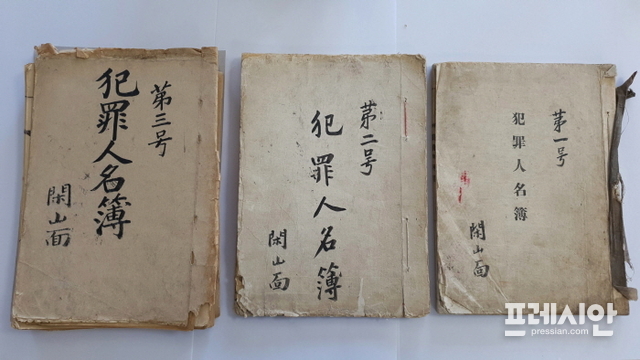 第三号
犯罪人名簿
閑山面
第二号
犯罪人名簿
閑山面
第一号
犯罪人名簿
閑山面
프레시안
pressian.com